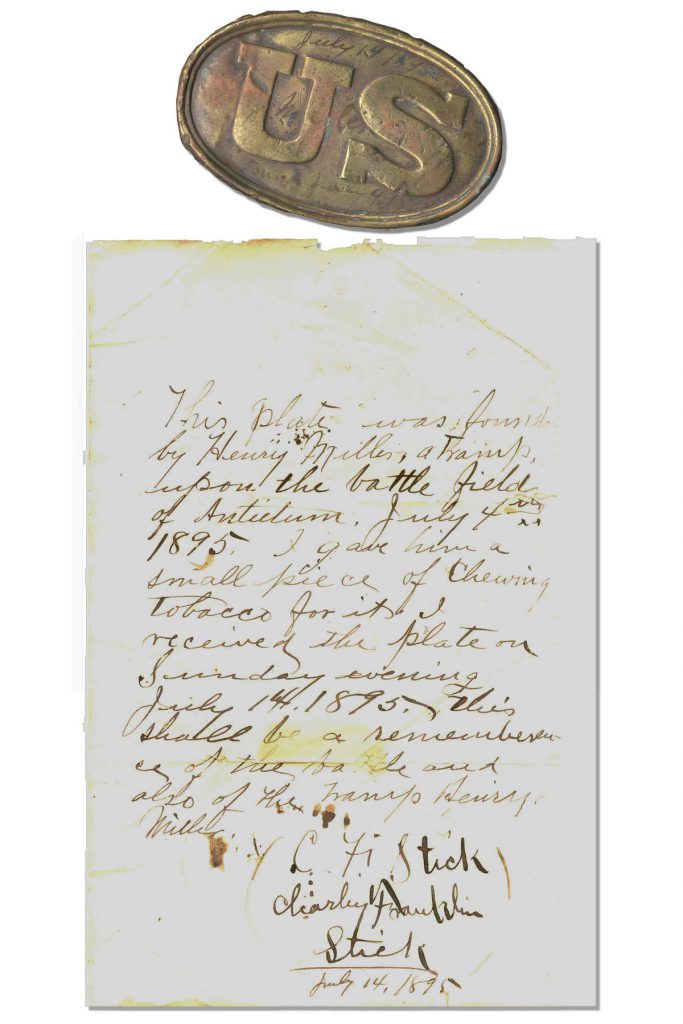 July 14 1895
US
This plate was found
by Henry Miller, a Tramp,
upon the battle field
of Antietum. July 4
1895. I gave him a
small piece of Chewing
tobacco for it. I
received the plate on
Sunday evening
July 14. 1895. This
shall be a rememberen
ce of the battle and
also of the Tramp Henry
Miller.
(C. F. Stick)
Charley Franklin
Stick
July 14, 1895